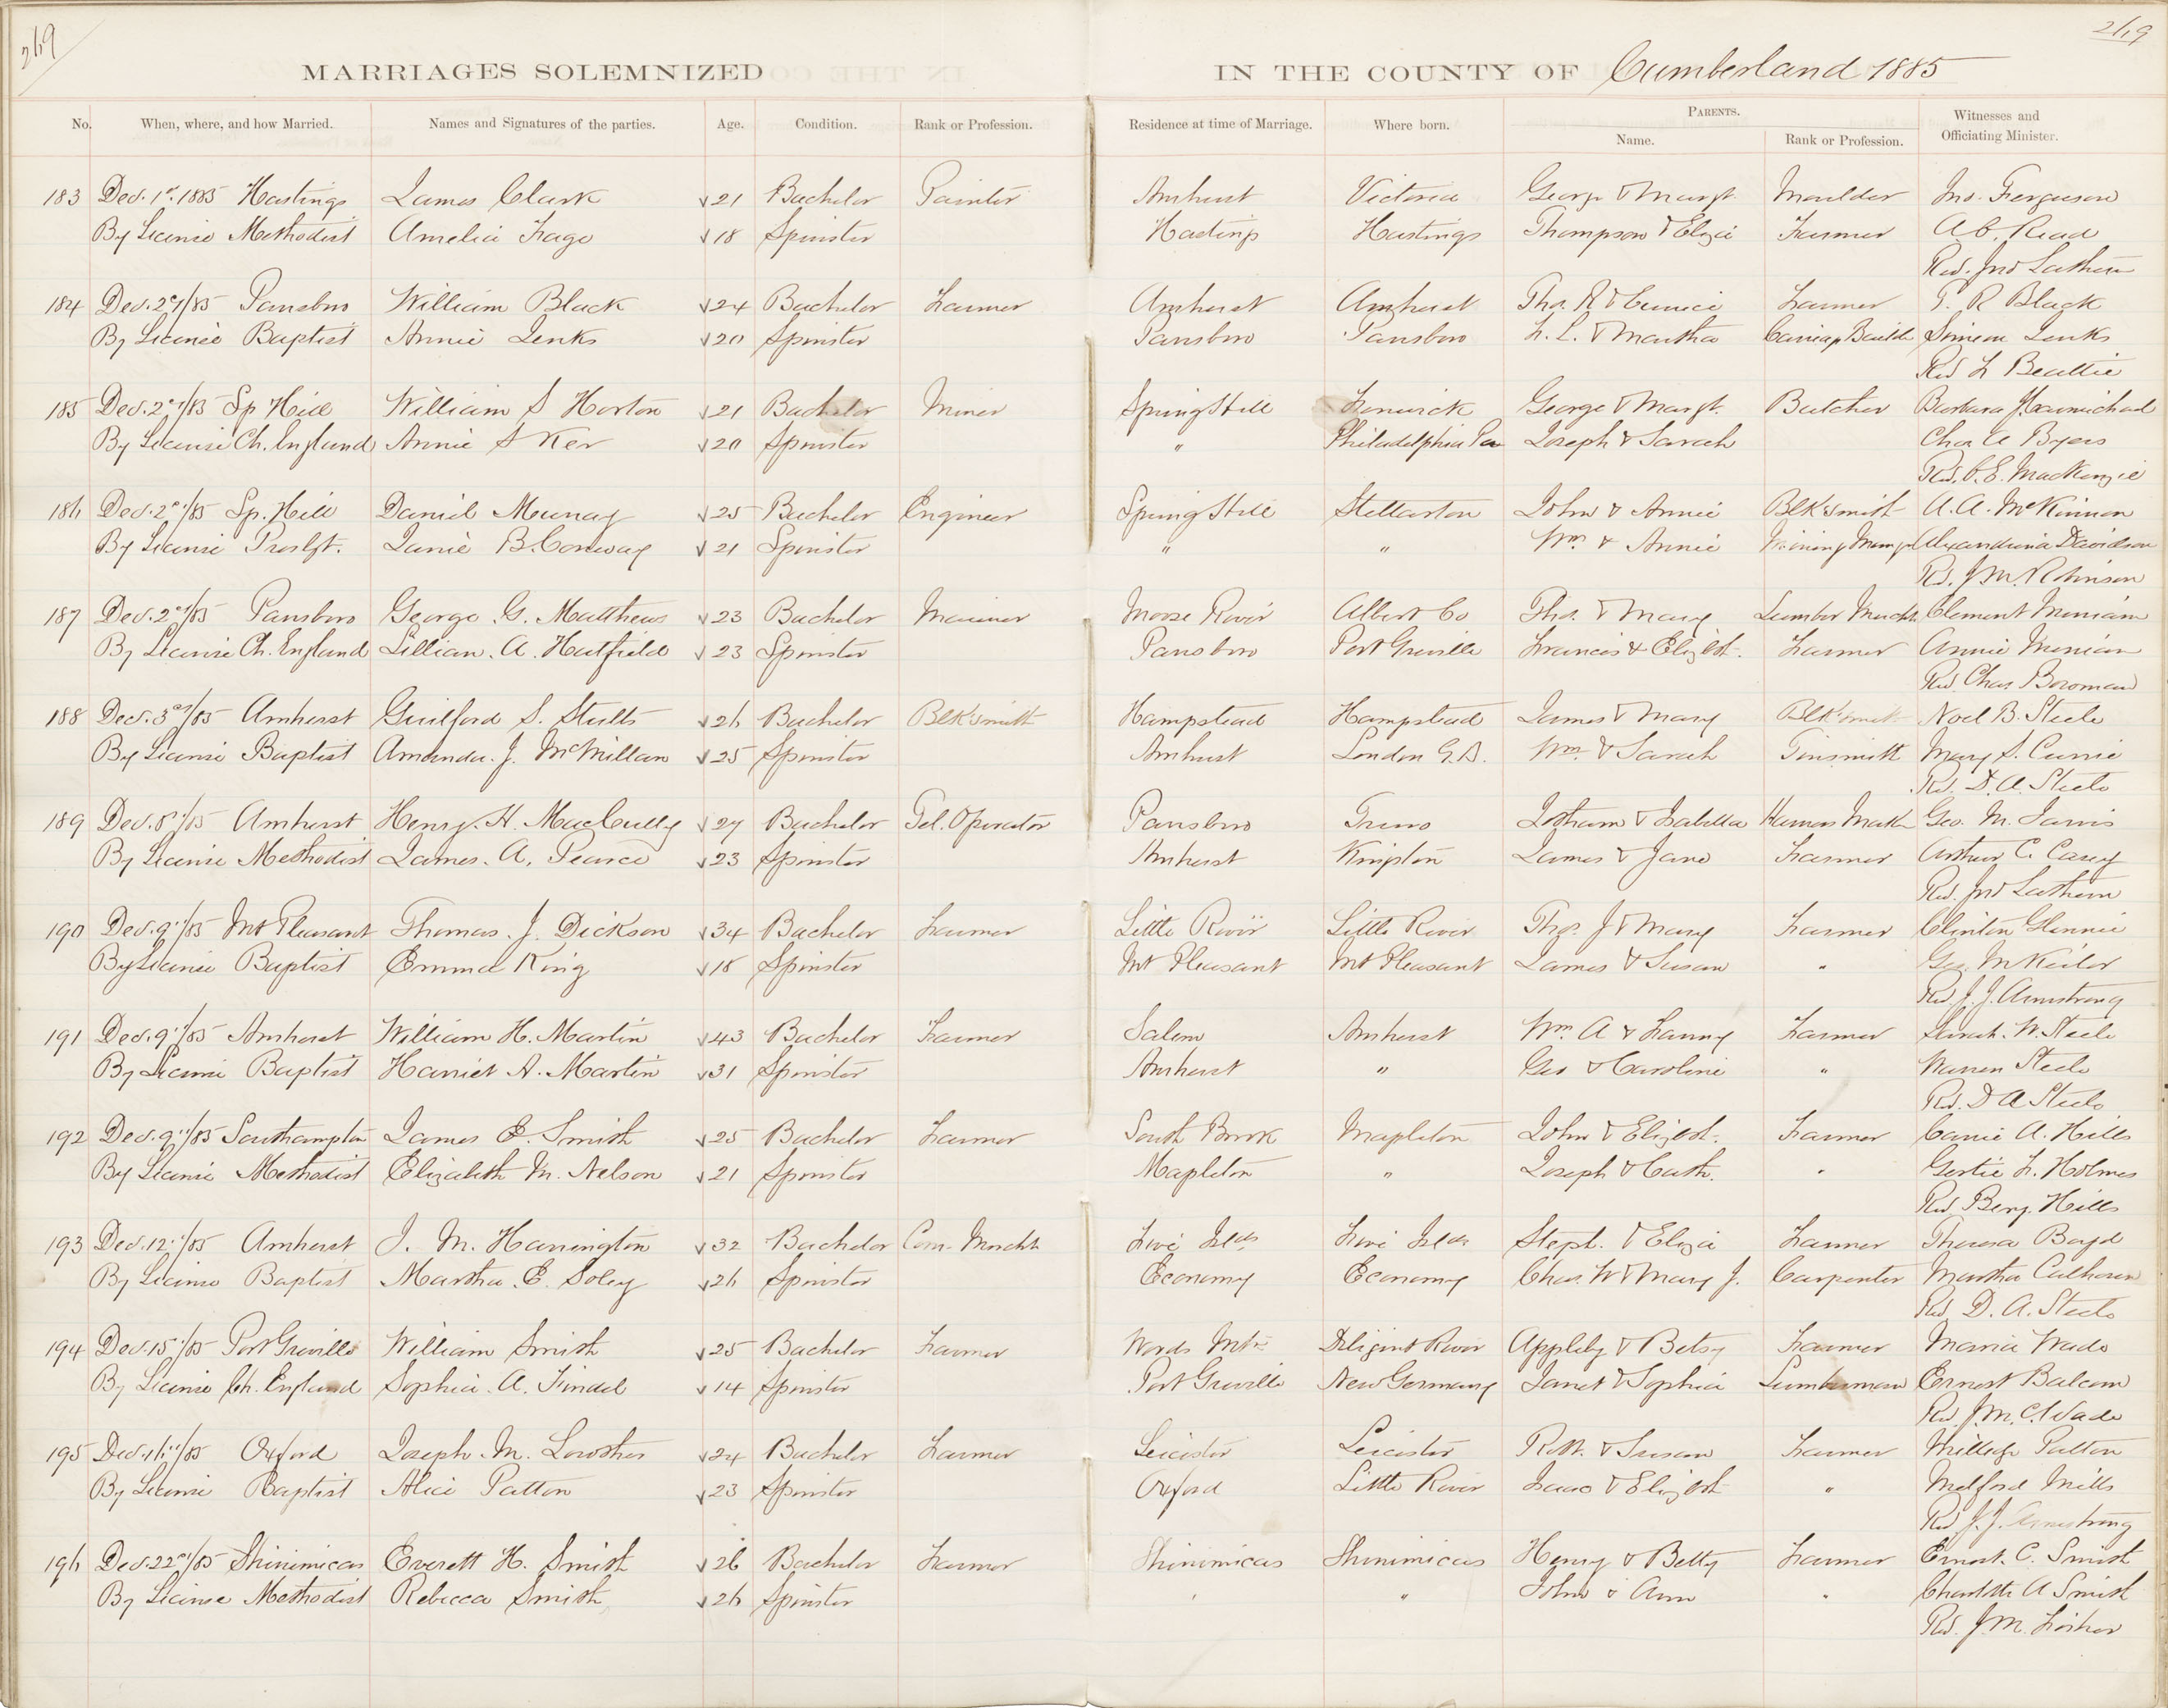 269 269
MARRIAGES SOLEMNIZED IN THE COUNTY OF Cumberland 1885
No. When, where, and how Married. Names and Signatures of the parties. Age. Condition. Rank or Profession. Residence at time of Marriage. Where born. PARENTS. Name. Rank or Profession. Witnesses and Officiating Minister.
183 Dec. 1st 1885 Hastings James Clark 21 Bachelor Painter Amherst Victoria George & Margt. Moulder Jno. Ferguson
By License Methodist Amelia Fage 18 Spinster Hastings Hastings Thompson & Eliza Farmer A.C. Read
Rev. Jno Lathern
184 Dec. 2nd/85 Parrsboro William Black 24 Bachelor Farmer Amherst Amherst Thos. R & Eunice Farmer T. R Black
By License Baptist Annie Jenks 20 Spinster Parrsboro Parrsboro F. L. & Martha Carriage Builder Simeon Jenks
Rev F Beattie
185 Dec. 2nd/85 Sp Hill William S Horton 21 Bachelor Miner Spring Hill Fenwick George & Margt. Butcher Barbara J Carmichael
By License Ch. England Annie S Ker 20 Spinster " Philadelphia Pa Joseph & Sarah Chas A Byers
Rev. C. E. MacKenzie
186 Dec. 2nd/85 Sp. Hill Daniel Murray 25 Bachelor Engineer Spring Hill Stellarton John & Annie BlkSmith A. A. McKinnon
By License Presbyt. Janie B. Conway 21 Spinster " " Wm & Annie Mining Manager Alexandrina Davidson
Rev. J. M. Robinson
187 Dec. 2nd/85 Parrsboro George G. Matthews 23 Bachelor Mariner Moose River Albert Co Thos. & Mary Lumber Mercht Clement Merriam
By License Ch. England Lillian. A. Hatfield 23 Spinster Parrsboro Port Greville Francis & Elizbt. Farmer Annie Merriam
Rev Chas Bowman
188 Dec. 3rd/85 Amherst Guilford S. Stults 26 Bachelor BlkSmith Hampstead Hampstead James & Mary BlkSmith Noel B. Steele
By License Baptist Amanda. J. McMillan 25 Spinster Amherst London G.B. Wm & Sarah Tinsmith Mary S. Currie
Rev. D. A. Steele
189 Dec. 8"/85 Amherst Henry. H. MacCully 27 Bachelor Tel. Operator Parrsboro Truro Jotham & Isabella Harness Maker Geo. M. Jarvis
By License Methodist James. A. Pearce 23 Spinster Amherst Kingston James & Jane Farmer Arthur C. Casey
Rev. Jno Lathern
190 Dec. 9"/85 Mt Pleasant Thomas. J. Dickson 34 Bachelor Farmer Little River Little River Thos. J & Mary Farmer Clinton Glennie
By License Baptist Emma King 18 Spinster Mt Pleasant Mt Pleasant James & Susan " Geo. McKeilor
Rev J. J. Armstrong
191 Dec. 9"/85 Amherst William H. Martin 43 Bachelor Farmer Salem Amherst Wm A & Fanny Farmer Sarah. W. Steele
By License Baptist Harriet A. Martin 31 Spinster Amherst " Geo & Caroline " Warren Steele
Rev. D A Steele
192 Dec. 9"/85 Southampton James E. Smith 25 Bachelor Farmer South Brook Mapleton John & Elizbt. Farmer Carrie A. Hills
By License Methodist Elizabeth M. Nelson 21 Spinster Mapleton " Joseph & Cath. " Gertie F. Holmes
Rev Benj. Hills
193 Dec. 12"/85 Amherst J. M. Harrington 32 Bachelor Com. Mercht Five Islds Five Islds Steph. & Eliza Farmer Theresa Boyd
By License Baptist Martha. E. Soley 26 Spinster Economy Economy Chas. W & Mary J. Carpenter Martha Calhoun
Rev D. A. Steele
194 Dec. 15"/85 Port Greville William Smith 25 Bachelor Farmer Wards Mtn Diligent River Appleby & Betsy Farmer Maria Wade
By License Ch. England Sophia. A. Findel 14 Spinster Port Greville New Germany Janet & Sophia Lumberman Ernest Balcom
Rev J. M. C. Wade
195 Dec. 16"/85 Oxford Joseph. M. Lowther 24 Bachelor Farmer Leicester Leicester Robt. & Susan Farmer Milledge Patton
By License Baptist Alice Patton 23 Spinster Oxford Little River Isaac & Elizbt " Melford Mills
Rev J. J. Armstrong
196 Dec. 22nd/85 Shinimicas Everett H. Smith 26 Bachelor Farmer Shinimicas Shinimicas Henry & Betty Farmer Ernest. C. Smith
By License Methodist Rebecca Smith 26 Spinster " " John & Ann " Charlotte A Smith
Rev. J. M. Fisher